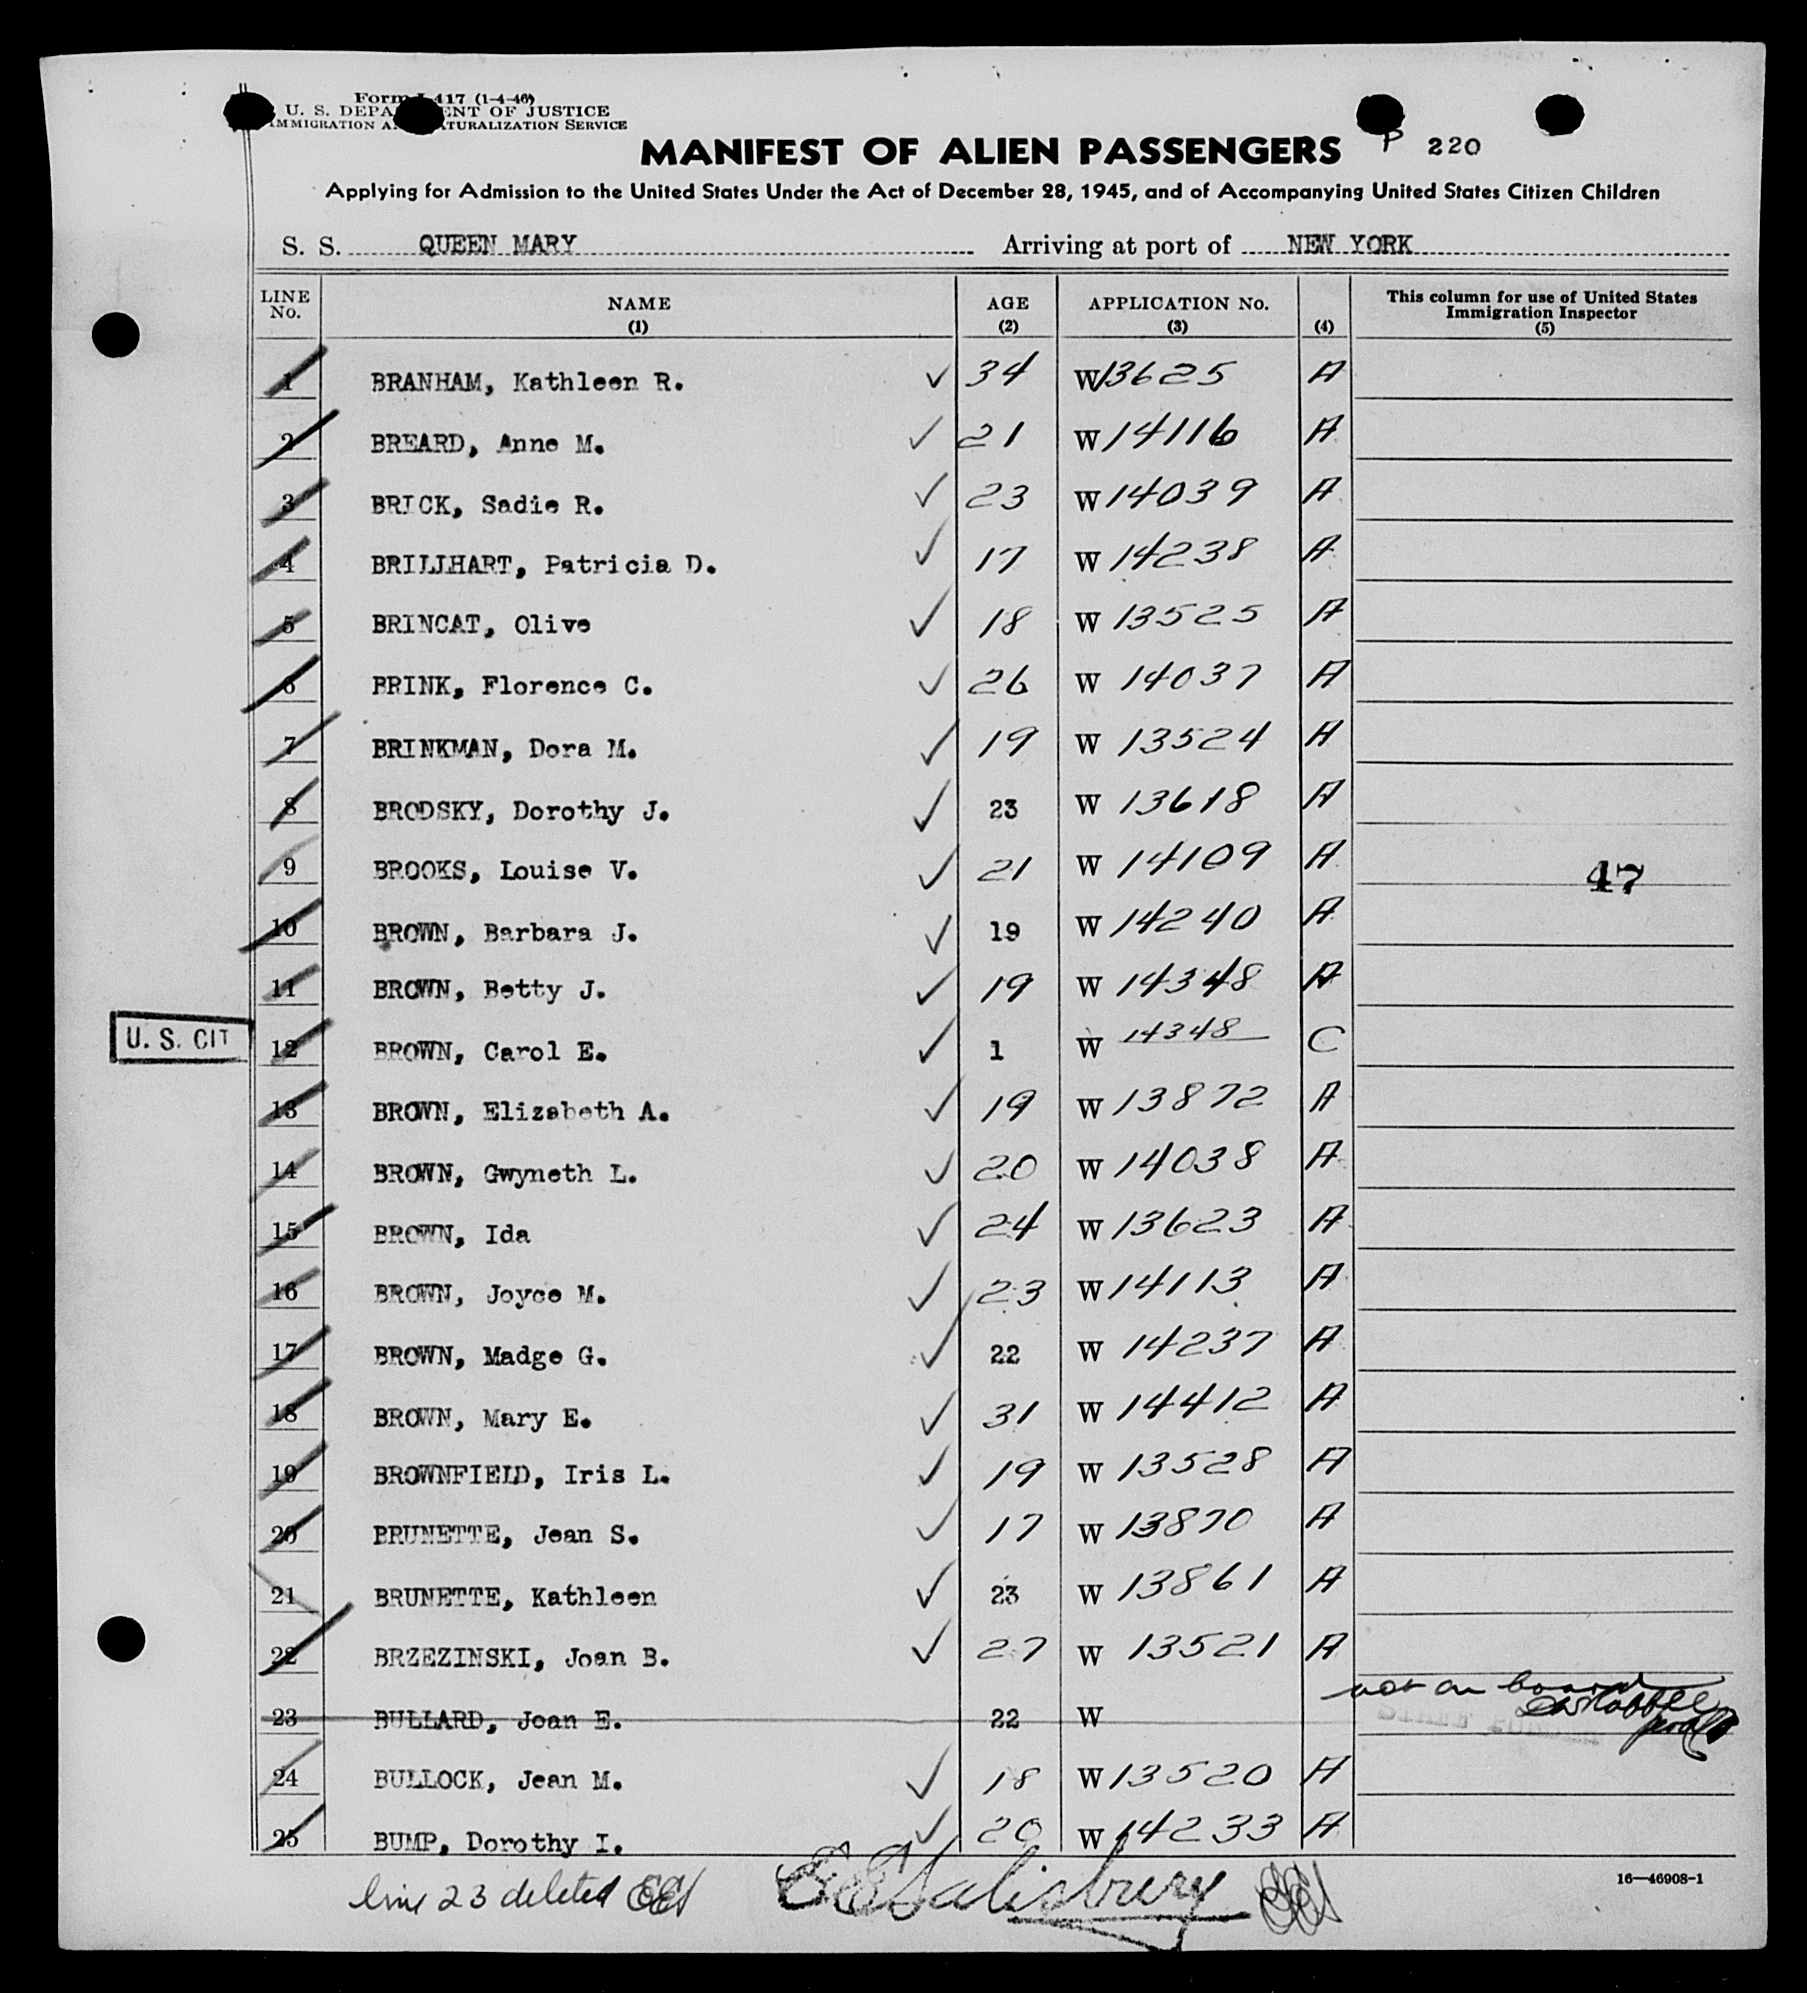 Form I-417 (1-4-46)
U. S. DEPARTMENT OF JUSTICE
IMMIGRATION AND NATURALIZATION SERVICE
MANIFEST OF ALIEN PASSENGERS P 220
Applying for Admission to the United States Under the Act of December 28, 1945, and of Accompanying United States Citizen Children
S. S. QUEEN MARY Arriving at port of NEW YORK
LINE No. NAME (1) AGE (2) APPLICATION No. (3) (4) This column for use of United States Immigration Inspector (5)
1 BRANHAM, Kathleen R. ✓ 34 W 13625 A
2 BREARD, Anne M. ✓ 21 W 14116 A
3 BRICK, Sadie R. ✓ 23 W 14039 A
4 BRILLHART, Patricia D. ✓ 17 W 14238 A
5 BRINCAT, Olive ✓ 18 W 13525 A
6 BRINK, Florence C. ✓ 26 W 14037 A
7 BRINKMAN, Dora M. ✓ 19 W 13524 A
8 BRODSKY, Dorothy J. ✓ 23 W 13618 A
9 BROOKS, Louise V. ✓ 21 W 14109 A 47
10 BROWN, Barbara J. ✓ 19 W 14240 A
11 BROWN, Betty J. ✓ 19 W 14348 A
U. S. CIT 12 BROWN, Carol E. ✓ 1 W 14348 C
13 BROWN, Elizabeth A. ✓ 19 W 13872 A
14 BROWN, Gwyneth L. ✓ 20 W 14038 A
15 BROWN, Ida ✓ 24 W 13623 A
16 BROWN, Joyce M. ✓ 23 W 14113 A
17 BROWN, Madge G. ✓ 22 W 14237 A
18 BROWN, Mary E. ✓ 31 W 14412 A
19 BROWNFIELD, Iris L. ✓ 19 W 13528 A
20 BRUNETTE, Jean S. ✓ 17 W 13870 A
21 BRUNETTE, Kathleen ✓ 23 W 13861 A
22 BRZEZINSKI, Joan B. ✓ 27 W 13521 A
23 BULLARD, Joan E. 22 W not on board
24 BULLOCK, Jean M. ✓ 18 W 13520 A
25 BUMP, Dorothy I. ✓ 20 W 14233 A
line 23 deleted EES EESalisbury EES
16—46908-1